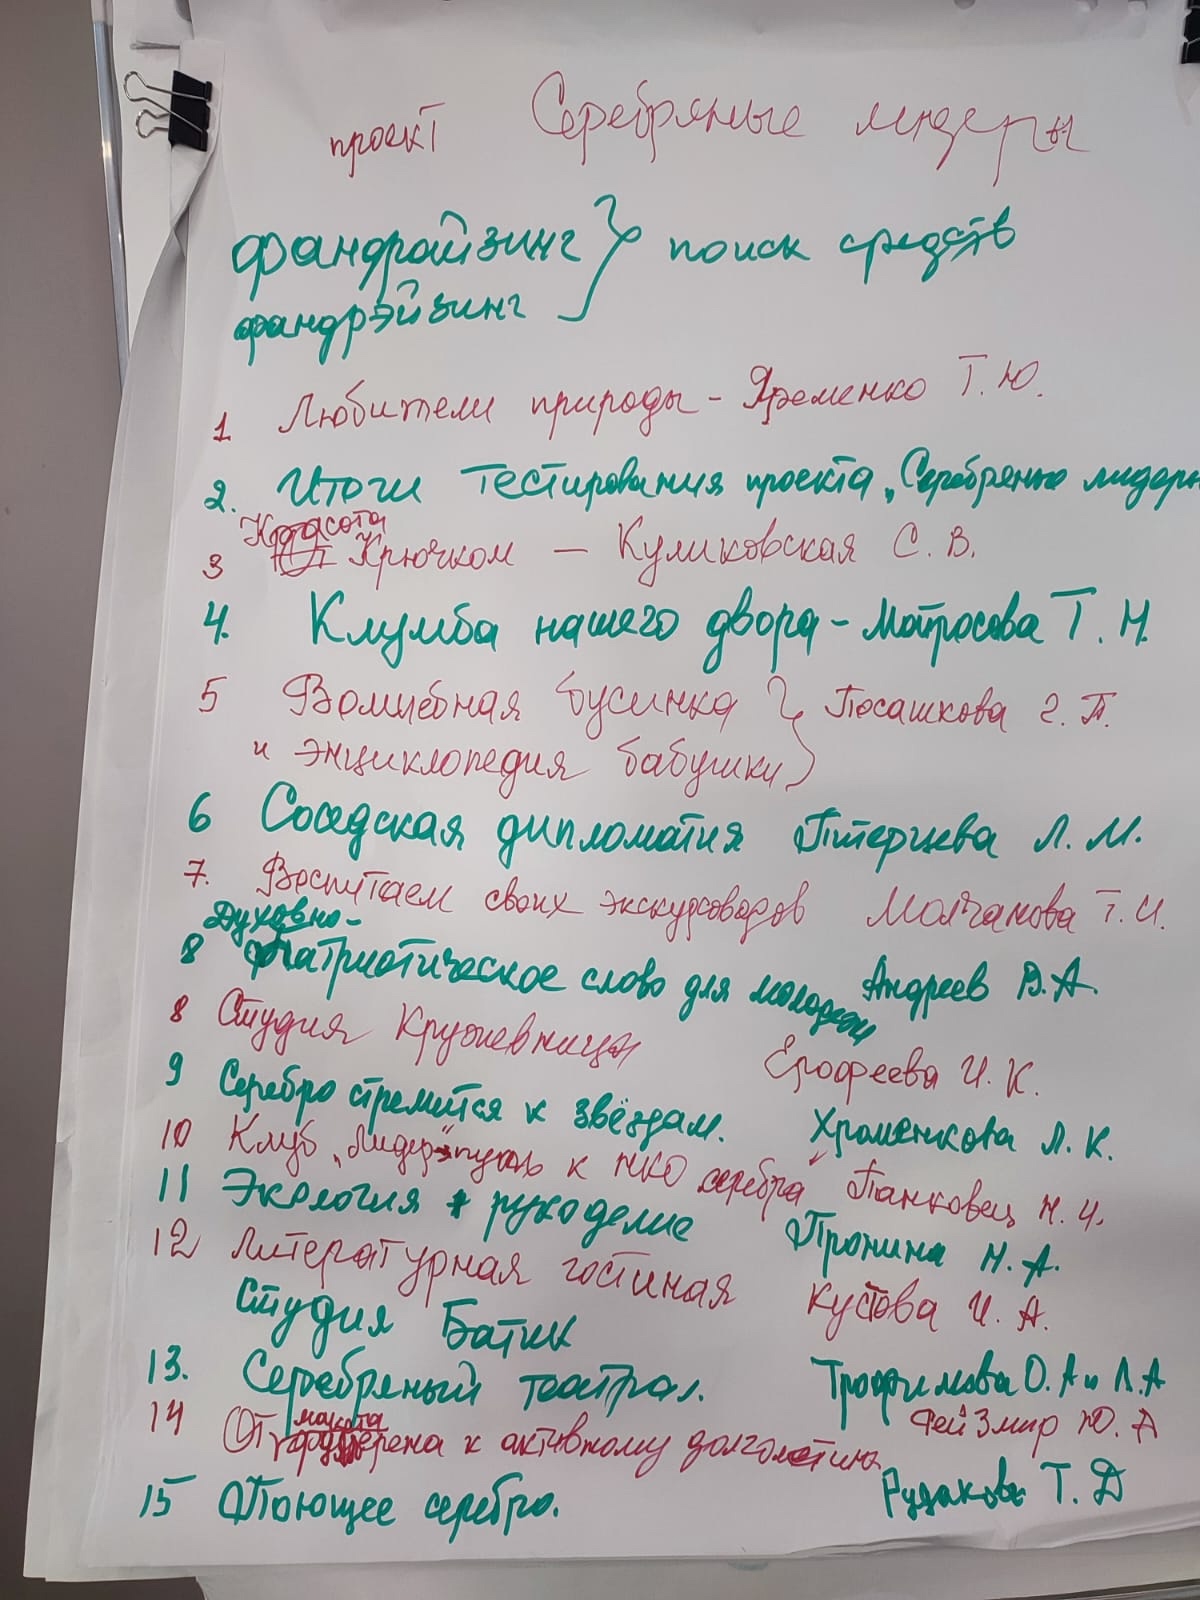 проект Серебряные лидеры
фандрайзинг } поиск средств
фандрэйзинг
1. Любители природы - Яременко Т. Ю.
2. Итоги тестирования проекта „Серебряные лидеры
Красота
3 Крючком — Куликовская С. В.
4. Клумба нашего двора - Матросова Т. Н.
5 Волшебная бусинка } Посашкова Г. П.
и энциклопедия бабушки
6 Соседская дипломатия Птерцева Л. М.
7. Воспитаем своих экскурсоводов Молчанова Т. И.
Духовно-
8 патриотическое слово для молодежи Андреев В. А.
8 Студия Кружевница Ерофеева И. К.
9 Серебро стремится к звёздам. Хроменкова Л. К.
10 Клуб „Лидер" путь к НКО серебра" Панковец Н. И.
11 Экология + рукоделие Пронина Н. А.
12 Литературная гостиная Кустова И. А.
Студия Батик
13. Серебряный театрал. Трофимова О. А и Л. А
14 От макраме к активному долголетию Ю. А
15 Поющее серебро. Рудакова Т. Д